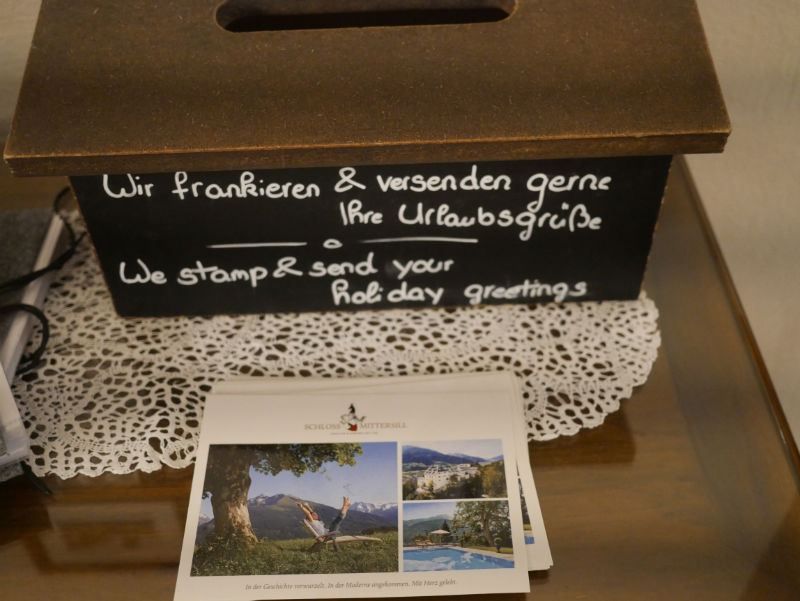 Wir frankieren & versenden gerne
Ihre Urlaubsgrüße
We stamp & send your
holiday greetings
SCHLOSS MITTERSILL
In der Geschichte verwurzelt. In der Moderne angekommen. Mit Herz gelebt.